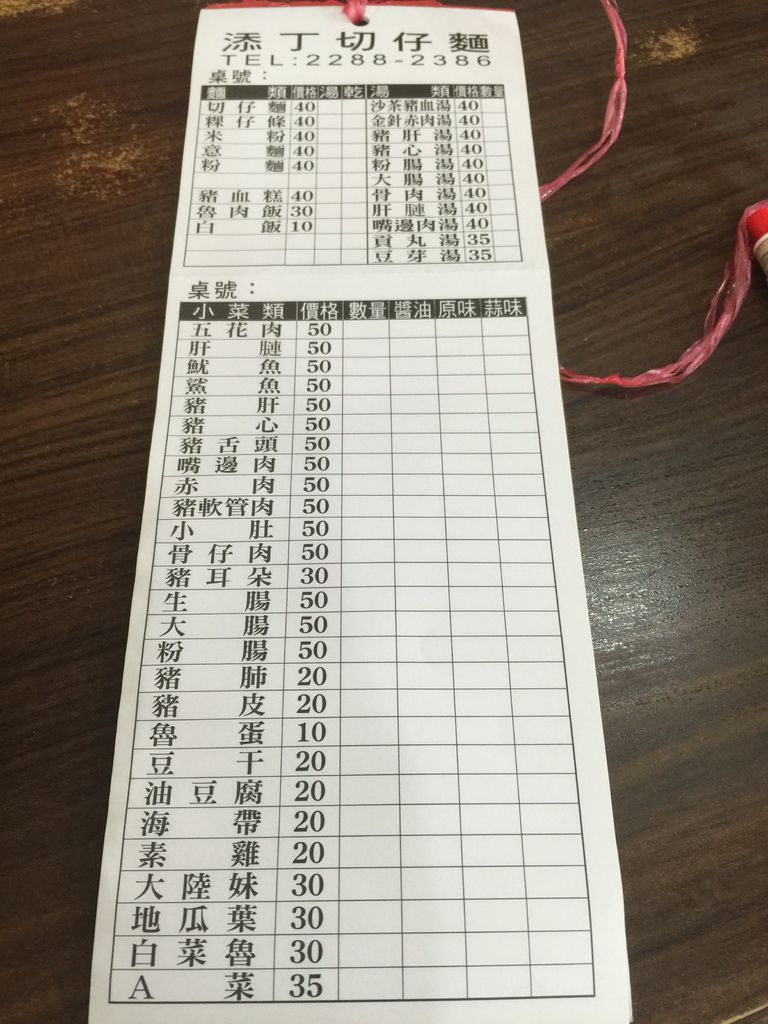 添丁切仔麵
TEL:2288-2386
桌號：
麵類 價格 湯 乾 湯類 價格 數量
切仔麵 40 沙茶豬血湯 40
粿仔條 40 金針赤肉湯 40
米粉 40 豬肝湯 40
意麵 40 豬心湯 40
粉麵 40 粉腸湯 40
大腸湯 40
豬血糕 40 骨肉湯 40
魯肉飯 30 肝腱湯 40
白飯 10 嘴邊肉湯 40
貢丸湯 35
豆芽湯 35
桌號：
小菜類 價格 數量 醬油 原味 蒜味
五花肉 50
肝腱 50
魷魚 50
鯊魚 50
豬肝 50
豬心 50
豬舌頭 50
嘴邊肉 50
赤肉 50
豬軟管肉 50
小肚 50
骨仔肉 50
豬耳朵 30
生腸 50
大腸 50
粉腸 50
豬肺 20
豬皮 20
魯蛋 10
豆干 20
油豆腐 20
海帶 20
素雞 20
大陸妹 30
地瓜葉 30
白菜魯 30
A菜 35